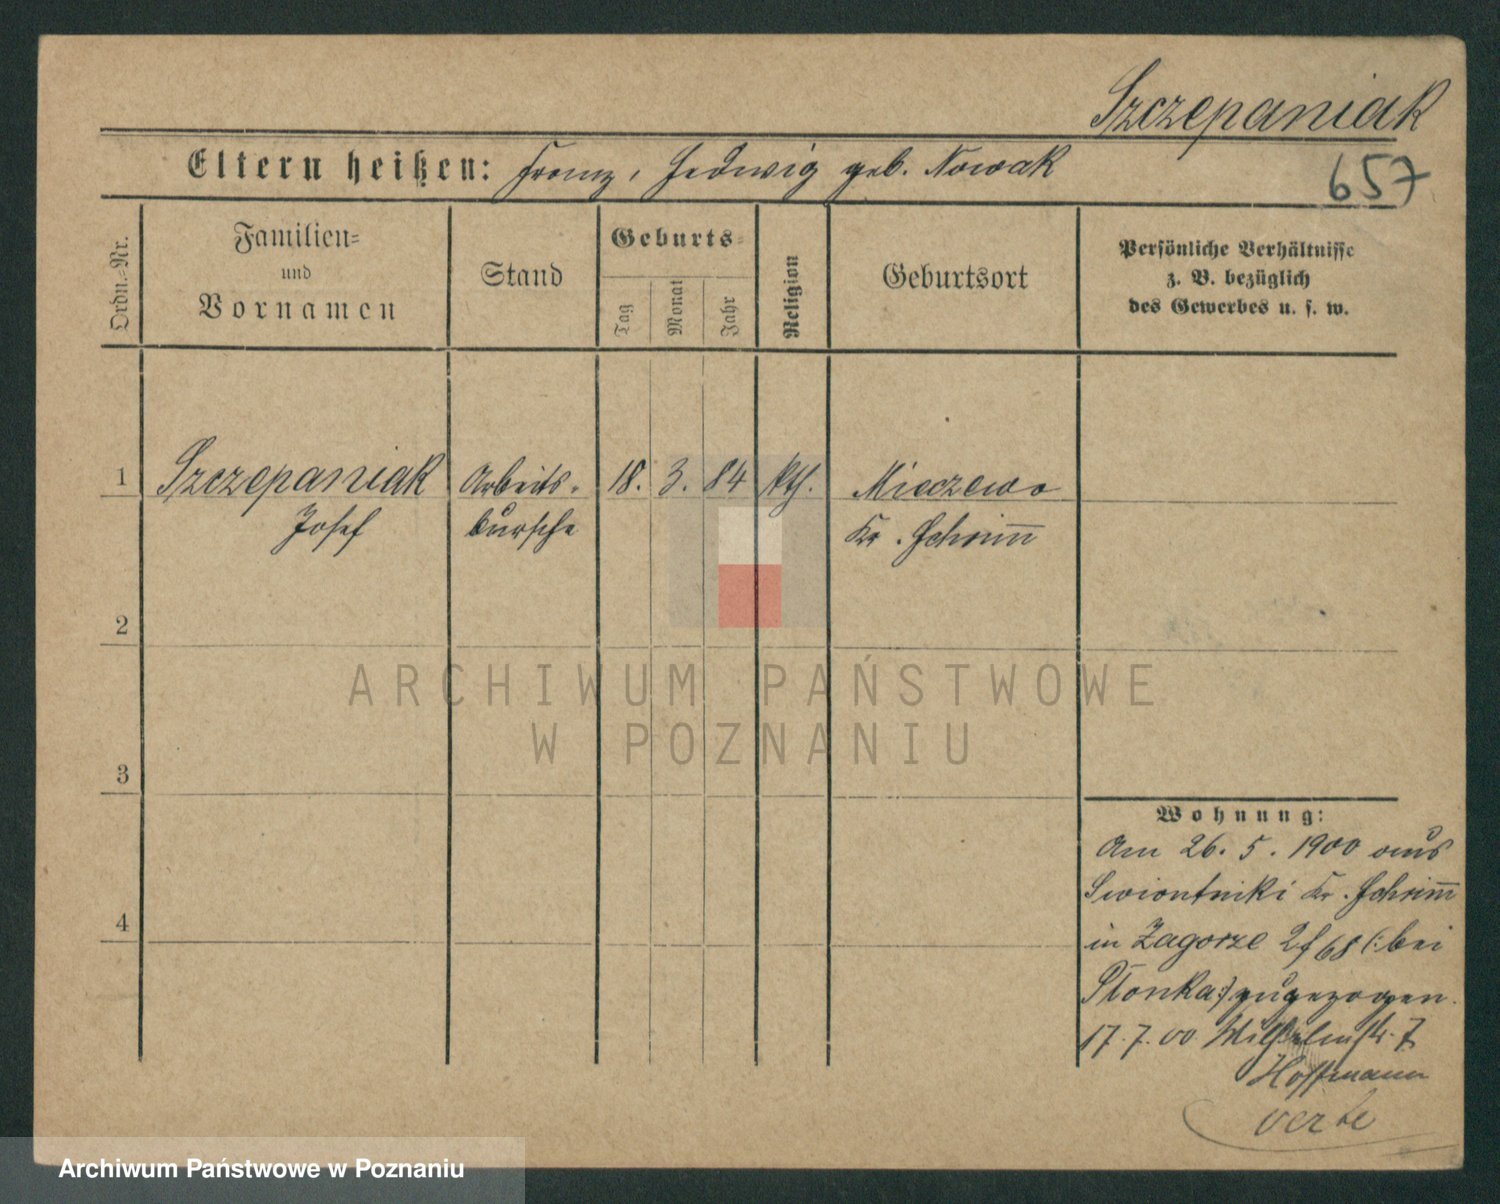 Szczepaniak
657
Eltern heißen: Franz, Hedwig geb. Nowak
Ordn.=Nr.
Familien=
und
Vornamen
Stand
Geburts=
Tag
Monat
Jahr
Religion
Geburtsort
Persönliche Verhältnisse
z. B. bezüglich
des Gewerbes u. s. w.
1 Szczepaniak Arbeits- 18. 3. 84 kth. Mieczewo
Josef bursche Kr. Schrim̅
2
ARCHIWUM PAŃSTWOWE
W POZNANIU
3
Wohnung:
Am 26. 5. 1900 aus
4
Swiontniki Kr. Schrim̅
in Zagorze 68 (: bei
Płonka :) zugezogen.
17. 7. 00 Wilhelmstr. 7
Hoffmann
verte
Archiwum Państwowe w Poznaniu